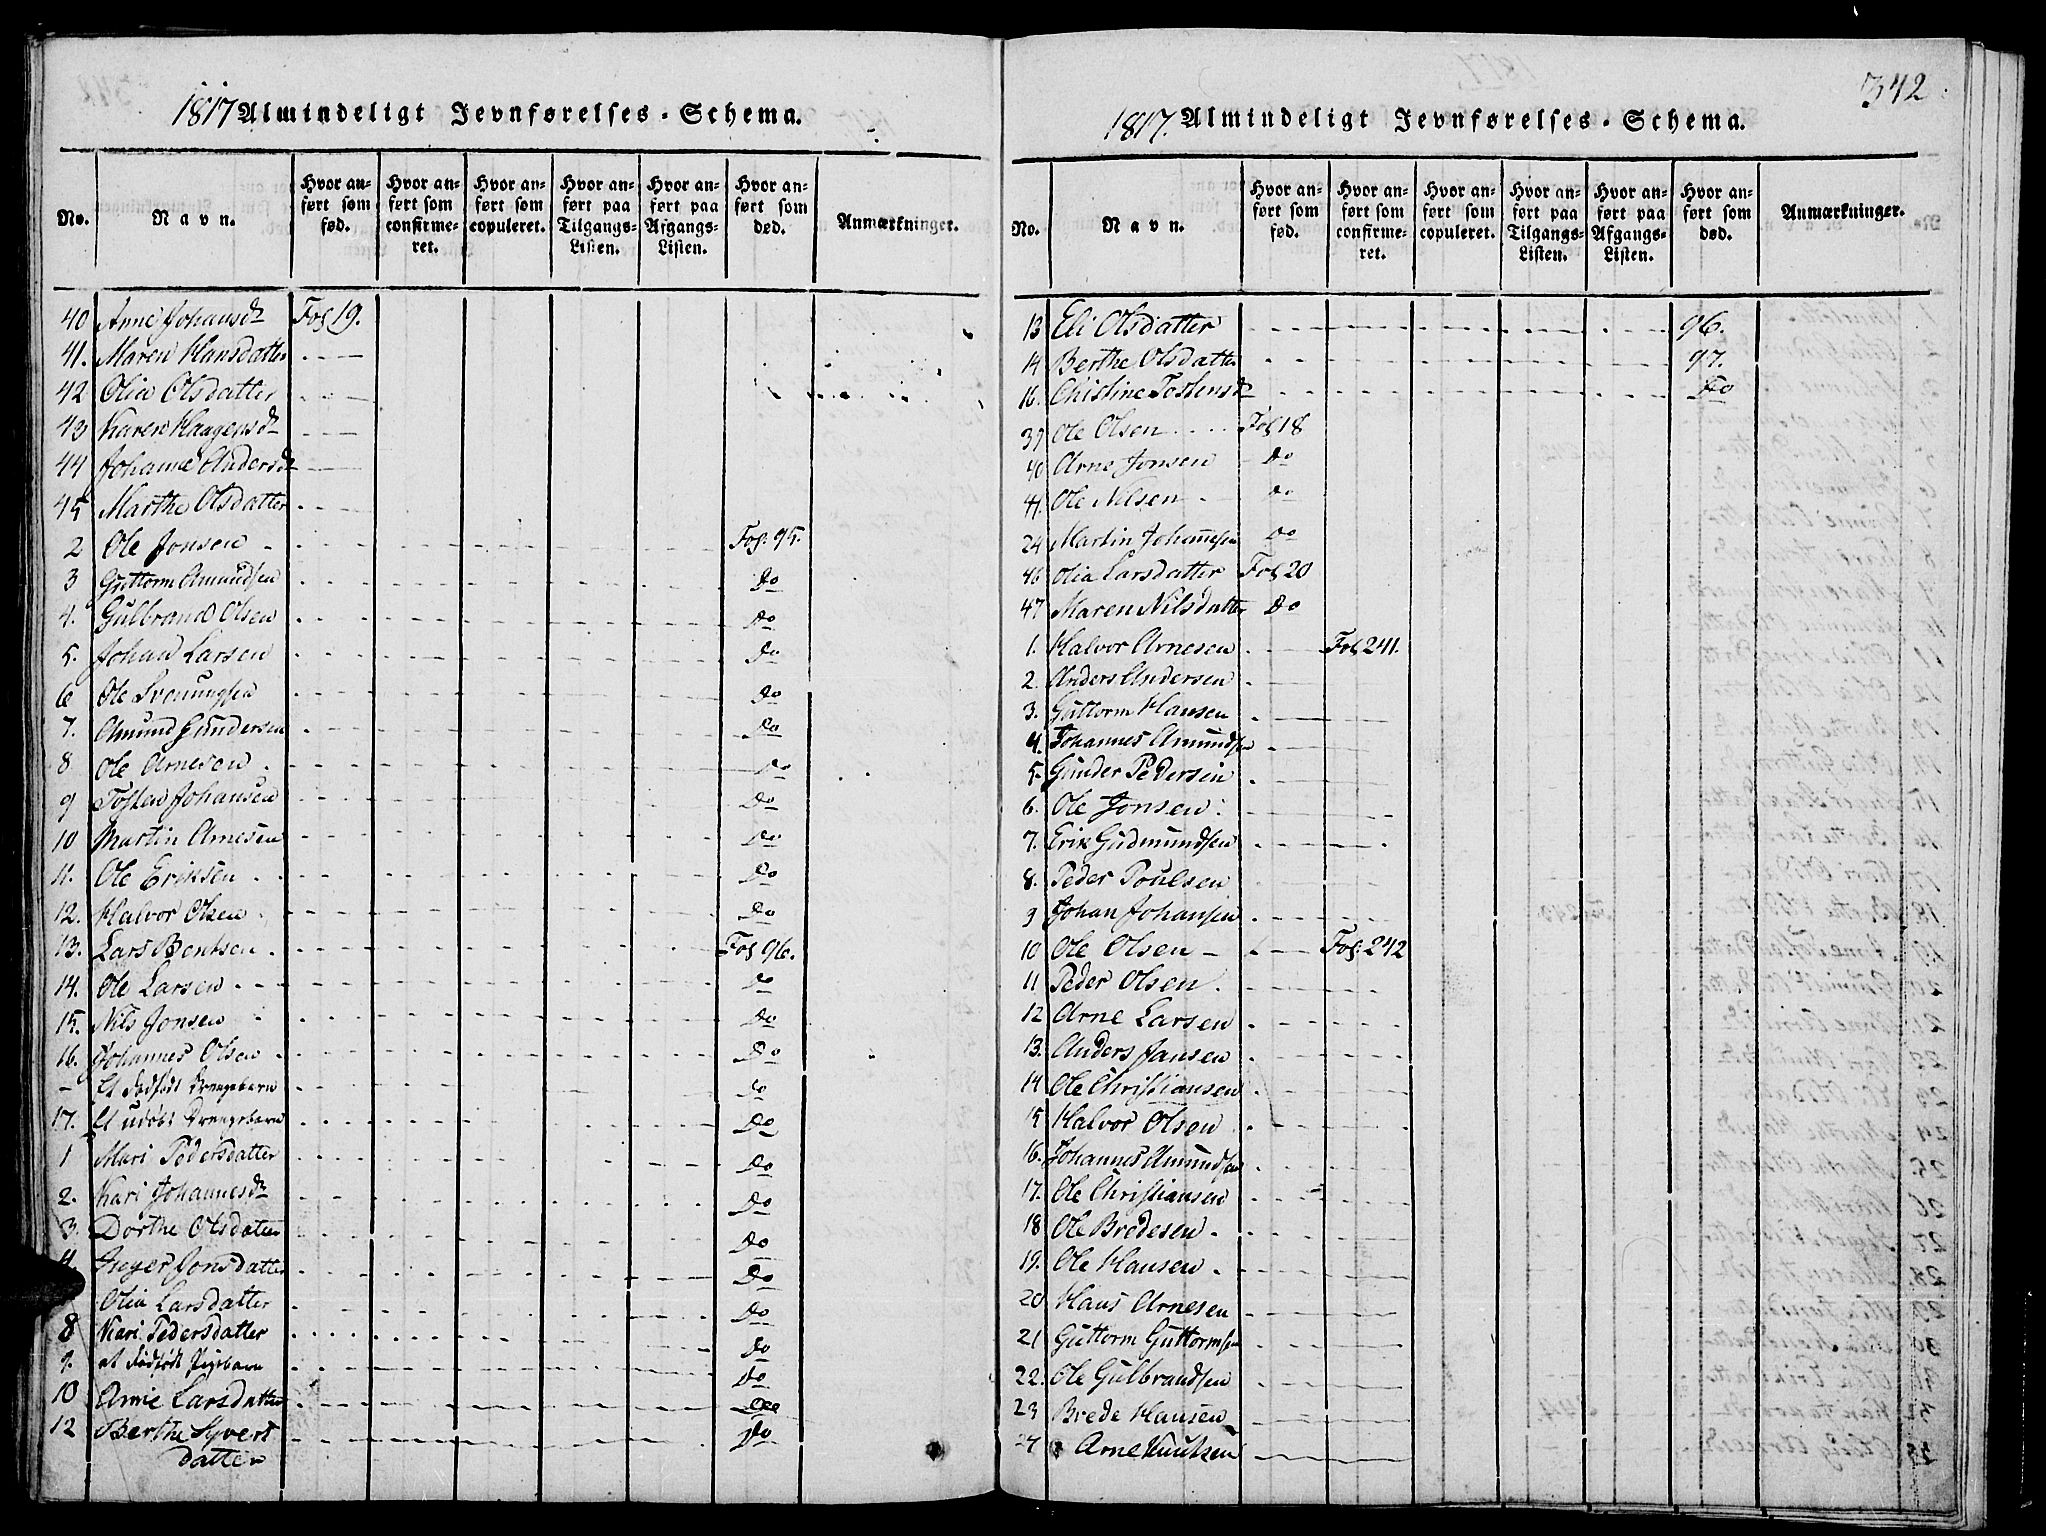 1817 Almindeligt Jevnførelses-Schema.
No. Navn. Hvor anført som fød. Hvor anført som confirmeret. Hvor anført som copuleret. Hvor anført paa Tilgangs-Listen. Hvor anført paa Afgangs-Listen. Hvor anført som død. Anmærkninger.
40 Anne Johansdr Fol 19.
41. Maren Hansdatter
42 Olia Olsdatter
43 Karen Haagensdr
44 Johanne Andersdr
45 Marthe Olsdatter
2 Ole Jonsen Fol: 95.
3 Guttorm Amundsen Do
4. Gulbrand Olsen Do
5. Johan Larsen Do
6 Ole Svenungsen Do
7. Amund Gundersen Do
8 Ole Arnesen Do
9 Tosten Johansen Do
10 Martin Arnesen Do
11. Ole Eriksen Do
12. Halvor Olsen Do
13. Lars Bentsen Fol 96.
14. Ole Larsen Do
15. Nils Jonsen Do
16. Johannes Olsen Do
- Et Dødfødt Drengebarn Do
17. Et udøbt Drengebarn Do
1 Mari Pedersdatter Do
2. Kari Johannesdr Do
3. Dorthe Olsdatter Do
4 Inger Jonsdatter Do
Olia Larsdatter Do
8 Kari Pedersdatter Do
9. et Dødfødt Pigebarn Do
10 Anne Larsdatter Do
12 Berthe Syvert Do
datter
342
1817. Almindeligt Jevnførelses-Schema.
No. Navn. Hvor anført som fød. Hvor anført som confirmeret. Hvor anført som copuleret. Hvor anført paa Tilgangs-Listen. Hvor anført paa Afgangs-Listen. Hvor anført som død. Anmærkninger.
13 Eli Olsdatter 96.
14 Berthe Olsdatter 97.
16. Christine Tostensdr Do
39 Ole Olsen Fol 18
40 Arne Jonsen Do
41. Ole Nilsen Do
24 Martin Johannesen Do
46 Olia Larsdatter Fol 20
47 Maren Nilsdatter Do
1. Halvor Arnesen Fol 241.
2. Anders Andersen
3. Guttorm Hansen
4. Johannes Amundsen
5. Gunder Pedersen
6. Ole Jonsen
7. Erik Gudmundsen
8. Peder Poulsen
9 Johan Johansen
10 Ole Olsen Fol: 242
11 Peder Olsen
12 Arne Larsen
13. Anders Jansen
14 Ole Christiansen
15 Halvor Olsen
16. Johannes Amundsen
17. Ole Christiansen
18 Ole Bredesen
19. Ole Hansen
20 Hans Arnesen
21 Guttorm Guttormsen
22. Ole Gulbrandsen
23 Brede Hansen
24 Arne Knutsen